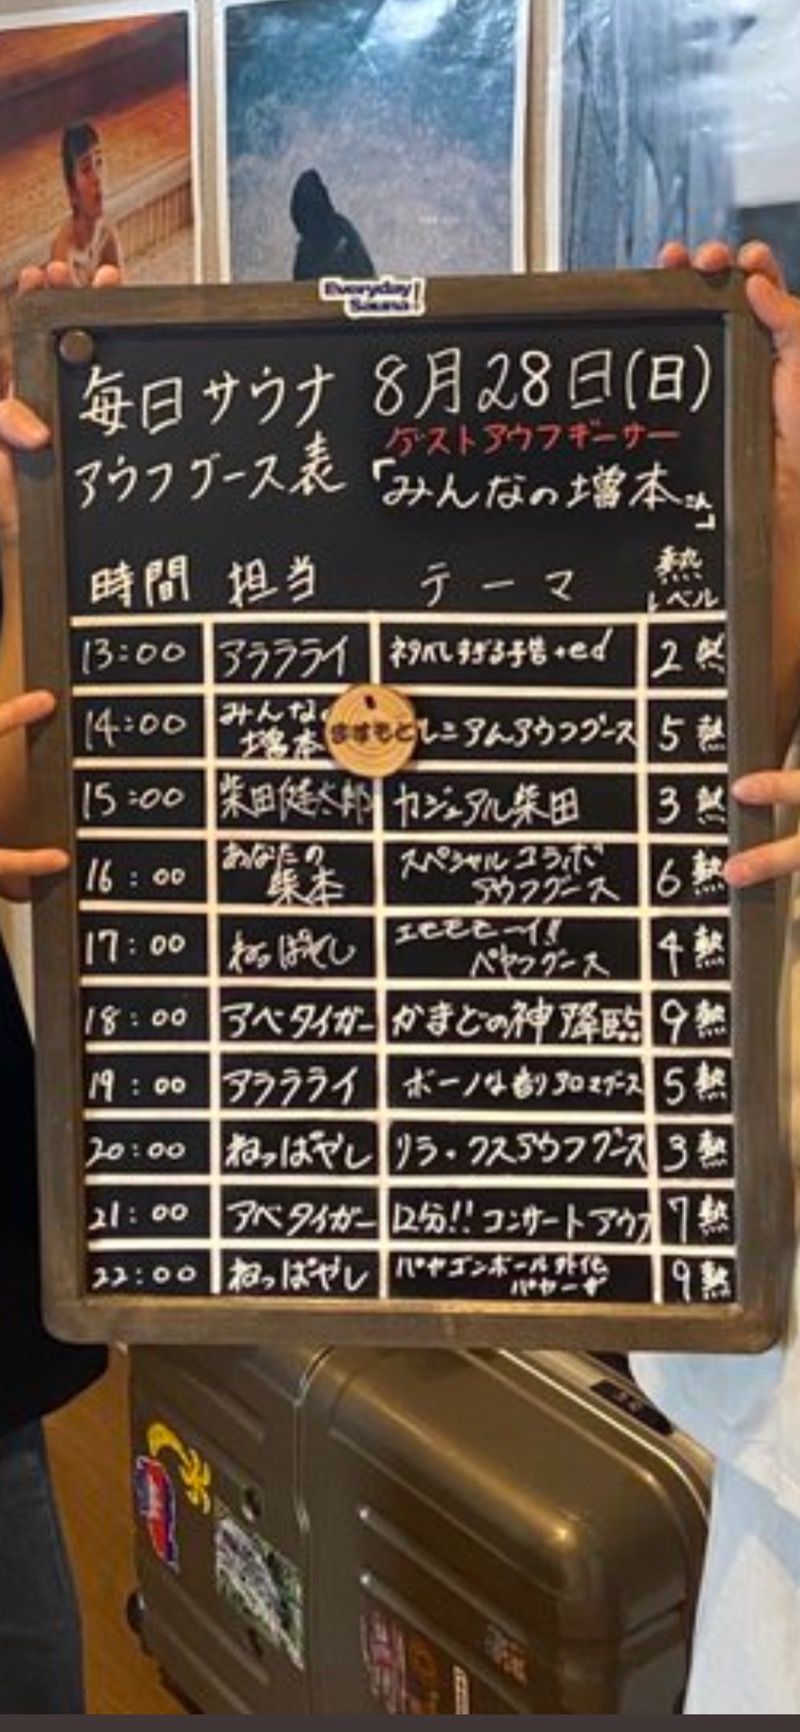 Everyday
Sauna!
毎日サウナ 8月28日(日)
ゲストアウフギーサー
アウフグース表 「みんなの増本さん」
時間 担当 テーマ 熱レベル
13:00 アラララライ ネタバレすぎる予告+ed 2熱
14:00 みんなの増本 ますもと レニアムアウフグース 5熱
15:00 柴田健太郎 カジュアル柴田 3熱
16:00 あなたの柴本 スペシャルコラボアウフグース 6熱
17:00 ねっぱやし エモモモーイ!! ペヤングース 4熱
18:00 アベタイガー かまどの神降臨 9熱
19:00 アララライ ボーノな香りアロマグース 5熱
20:00 ねっぱやし リラックスアウフグース 3熱
21:00 アベタイガー 12分!!コンサートアウフ 7熱
22:00 ねっぱやし パヤゴンボール外伝 パヤーザ 9熱